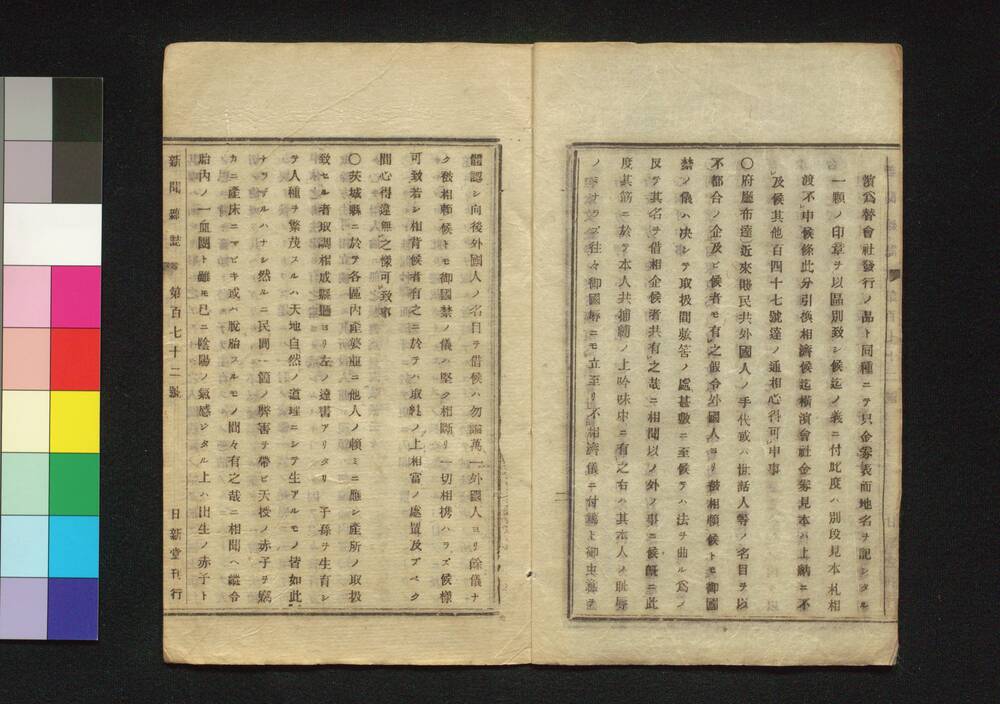 濱爲替會社發行ノ品ト同種ニテ只金券表面地名ヲ記シタル
一顆ノ印章ヲ以區別致シ候迄ノ義ニ付此度ハ別段見本札相
渡不申候條此分引換相濟候迄橫濱會社金券見本ハ上納ニ不
及候其他百四十七號達ノ通相心得可申事
〇府廳布達近來賤民共外國人ノ手代或ハ世話人等ノ名目ヲ以
不都合ノ企及ビ候者モ有之假令外國人ヨリ餘儀相頼候トモ御國
禁ノ儀ハ决シテ取扱間敷筈ノ處甚敷ニ至候テハ法ヲ曲ル爲ノ
反テ其名ヲ借相企候者共有之哉ニ相聞以ノ外ノ事ニ候既ニ此
度其筋ニ於テ本人共捕縛ノ上吟味中ニ有之右ハ其本人ノ耻辱
ノミナラズ往々御國辱ニモ立至リ不相濟儀ニ付篤ト御史意ヲ
體認シ向後外國人ノ名目ヲ借候ハ勿論萬一外國人ヨリ餘儀ナ
ク被相賴候トモ御國禁ノ儀ハ堅ク相斷リ一切相携ハラズ候樣
可致若シ相背候者有之ニ於テハ取糺ノ上相當ノ處置及ブベク
間心得違無之樣可致事
〇茨城縣ニ於テ各區內產婆軀ニ他人ノ賴ミニ應シ產所ノ取扱
致セル者取調相成縣廳ヨリ左ノ達書アリタリ 子孫ヲ生育シ
テ人種ヲ繁茂スルハ天地自然ノ道理ニシテ生アルモノ皆如此
ナラザルハナシ然ルニ民間一箇ノ弊害ヲ帶ビ天授ノ赤子ヲ窮
カニ產床ニマビキ或ハ脫胎スルモノ間々有之哉ニ相聞ヘ縱令
胎內ノ一血團ト雖モ已ニ陰陽ノ氣感ジタル上ハ出生ノ赤子ト
新聞雜誌 第百七十二號 日新堂刊行